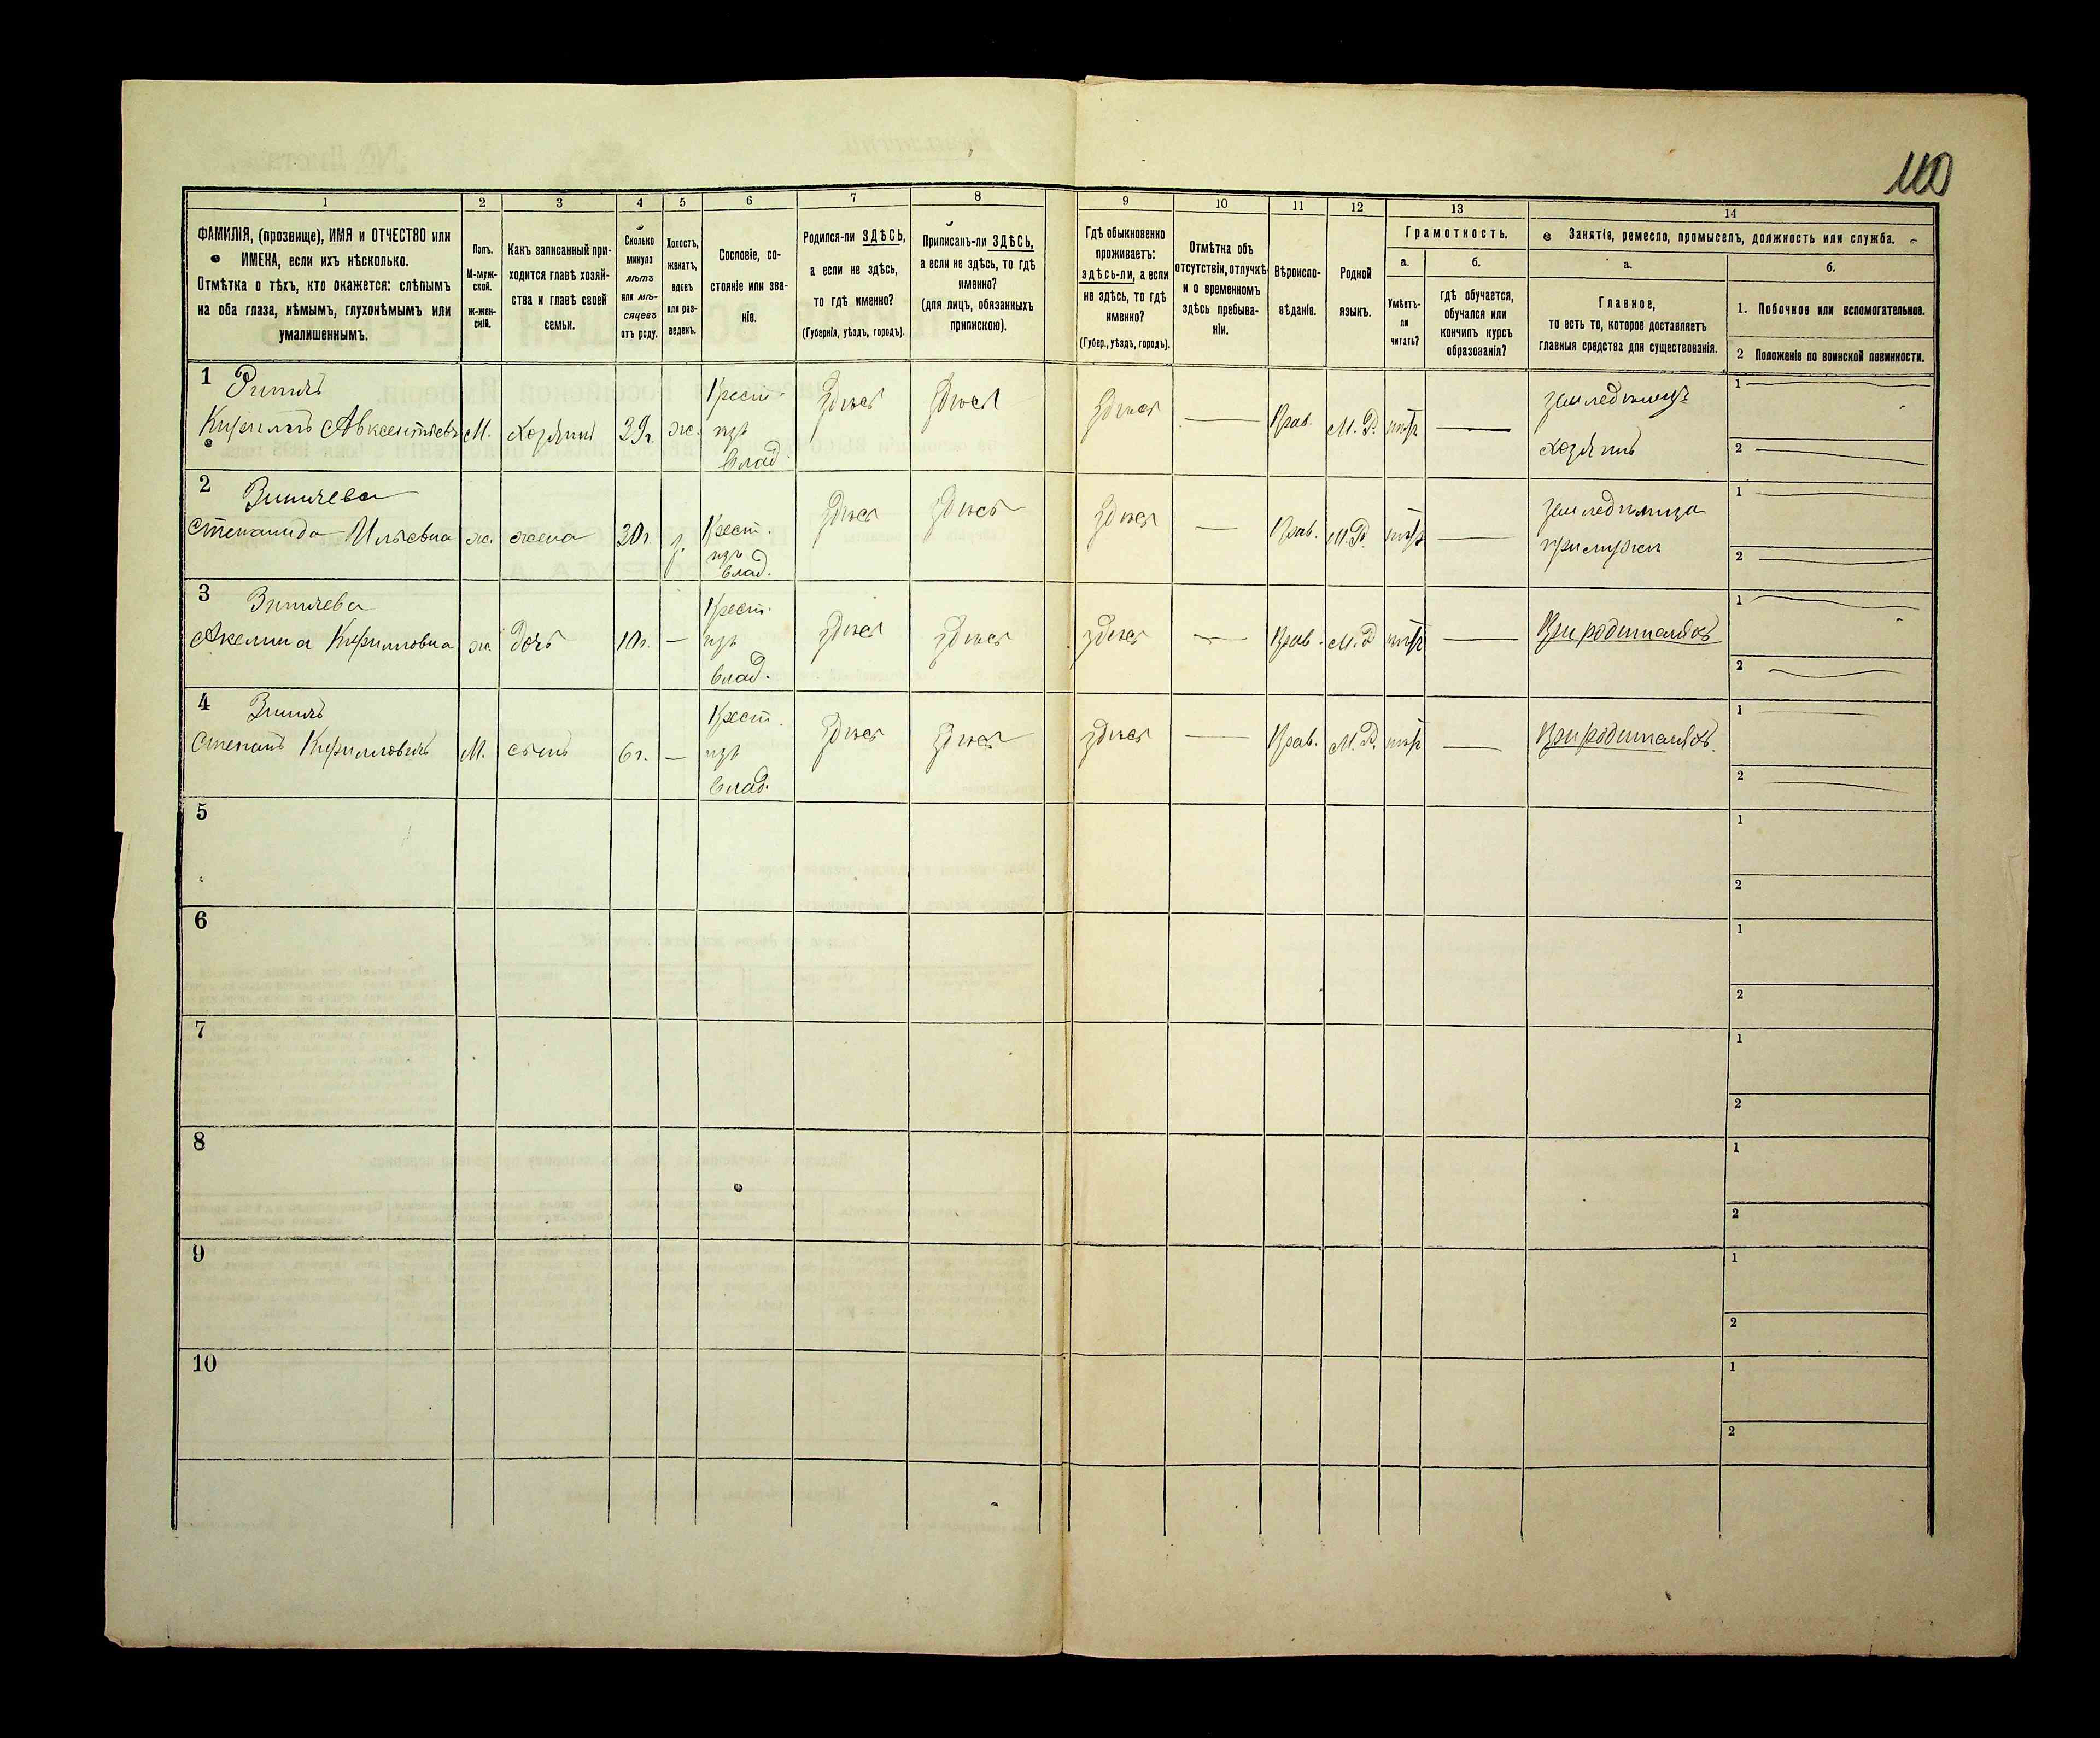 110
1
2
3
4
5
6
7
8
9
10
11
12
13
14
ФАМИЛІЯ, (прозвище), ИМЯ и ОТЧЕСТВО или
ИМЕНА, если ихъ нѣсколько.
Отмѣтка о тѣхъ, кто окажется: слѣпымъ
на оба глаза, нѣмымъ, глухонѣмымъ или
умалишеннымъ.
Полъ.
М-муж-
ской.
ж-жен-
скій.
Какъ записанный при-
ходится главѣ хозяй-
ства и главѣ своей
семьи.
Сколько
минуло
лѣтъ
или мѣ-
сяцевъ
отъ роду.
Холостъ,
женатъ,
вдовъ
или раз-
веденъ.
Сословіе, со-
стояніе или зва-
ніе.
Родился-ли ЗДѢСЬ,
а если не здѣсь,
то гдѣ именно?
(Губернія, уѣздъ, городъ).
Приписанъ-ли ЗДѢСЬ,
а если не здѣсь, то гдѣ
именно?
(для лицъ, обязанныхъ
припискою).
Гдѣ обыкновенно
проживаетъ:
здѣсь-ли, а если
не здѣсь, то гдѣ
именно?
(Губер., уѣздъ, городъ).
Отмѣтка объ
отсутствіи, отлучкѣ
и о временномъ
здѣсь пребыва-
ніи.
Вѣроиспо-
вѣданіе.
Родной
языкъ.
Грамотность.
а.
Умѣетъ-
ли
читать?
б.
гдѣ обучается,
обучался или
кончилъ курсъ
образованія?
Занятіе, ремесло, промыселъ, должность или служба.
а.
Главное,
то есть то, которое доставляетъ
главныя средства для существованія.
б.
1. Побочное или вспомогательное.
2 Положеніе по воинской повинности.
1
Кирилъ Авксентіевъ М. хозяинъ 39г. ж.
Крест. изъ влад.
здѣсь здѣсь здѣсь — Прав. М. Р. нѣтъ —
земледѣлецъ
хозяинъ
1
2
2
Степанида Ильевна ж. жена 30г. з.
Крест. изъ влад.
здѣсь здѣсь здѣсь — Прав. М. Р. нѣтъ —
1
2
3
Акелина Кириловна ж. дочь 10г. —
Крест. изъ влад.
здѣсь здѣсь здѣсь — Прав. М. Р. нѣтъ —
При родителяхъ
1
2
4
Степанъ Кириловичъ М. сынъ 6г. —
Крест. изъ влад.
здѣсь здѣсь здѣсь — Прав. М. Р. нѣтъ —
При родителяхъ.
1
2
5
1
2
6
1
2
7
1
2
8
1
2
9
1
2
10
1
2